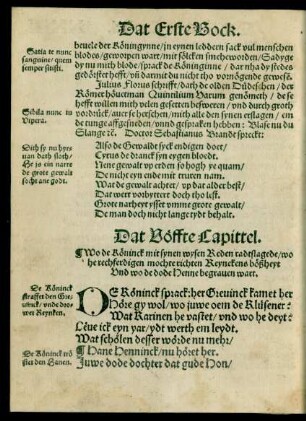 Dat Erste Bock.
bevele der Köningynne/in eynen leddern sack vul menschen
blodes/geworpen wart/mit sölken smeheworden/Sadyge
dy nu mith blode/sprack de Köninginne/dar nha dy stedes
gedörstet hefft/yß darmit du nicht tho vornögende gewest.
Julius Florus schrifft/dath de olden Düdeschen/der
Römer höuetman Quintilium Varum genömeth/de se
hefft willen mith velen gesetten besweren/und durch groth
vordrück/auer se herschen/mith alle den synen erslagen/em
de tunge affgesneden/unnd gespraken hebben: Blase nu du
Slange rc. Doctor Sebastianus Brande spreckt:
Satia te nunc
sanguine/quem
semper sitisti.
Sibila nunc in
Vipera.
Düth sy nu hyr
van dath sloth/
Et jo ein narre
de grote gewalt
socht ane godt.
Also de Gewalde syck endigen doet/
Cyrus de dranck syn eygen bloedt.
Nene gewalt up erden so hoghe ys quam/
De nicht eyn ende mit truren nam.
Wat de gewalt achtet/up dat alder best/
Dat wert vorbystert doch tho lest.
Grote narheyt ysset ymme grote gewalt/
De man doch nicht lange tydt behalt.
Dat Vöffte Capittel.
¶ Wo de Köninck mit synen wysen Reden radtslagede/wo
he rechferdigen mochte richten Reynckens bößheyt
Und wo de dode Henne begrauen wart.
De Köninck
straffet den Gre
uinck/unde drou
wet Reynken.
De Köninck tröstet
den Hanen.
DE Köninck sprack: her Greuinck kamet her
Höre gy wol/wo juwe oem de Klüsener:
Wat Karinen he vastet/und wo he deyt:
Leue ick eyn yar/ydt werth em leydt.
Wat schölen desser wörde nu mehr/
¶ Hane Henninck/nu höret her.
Juwe dode dochter dat gude Hon/